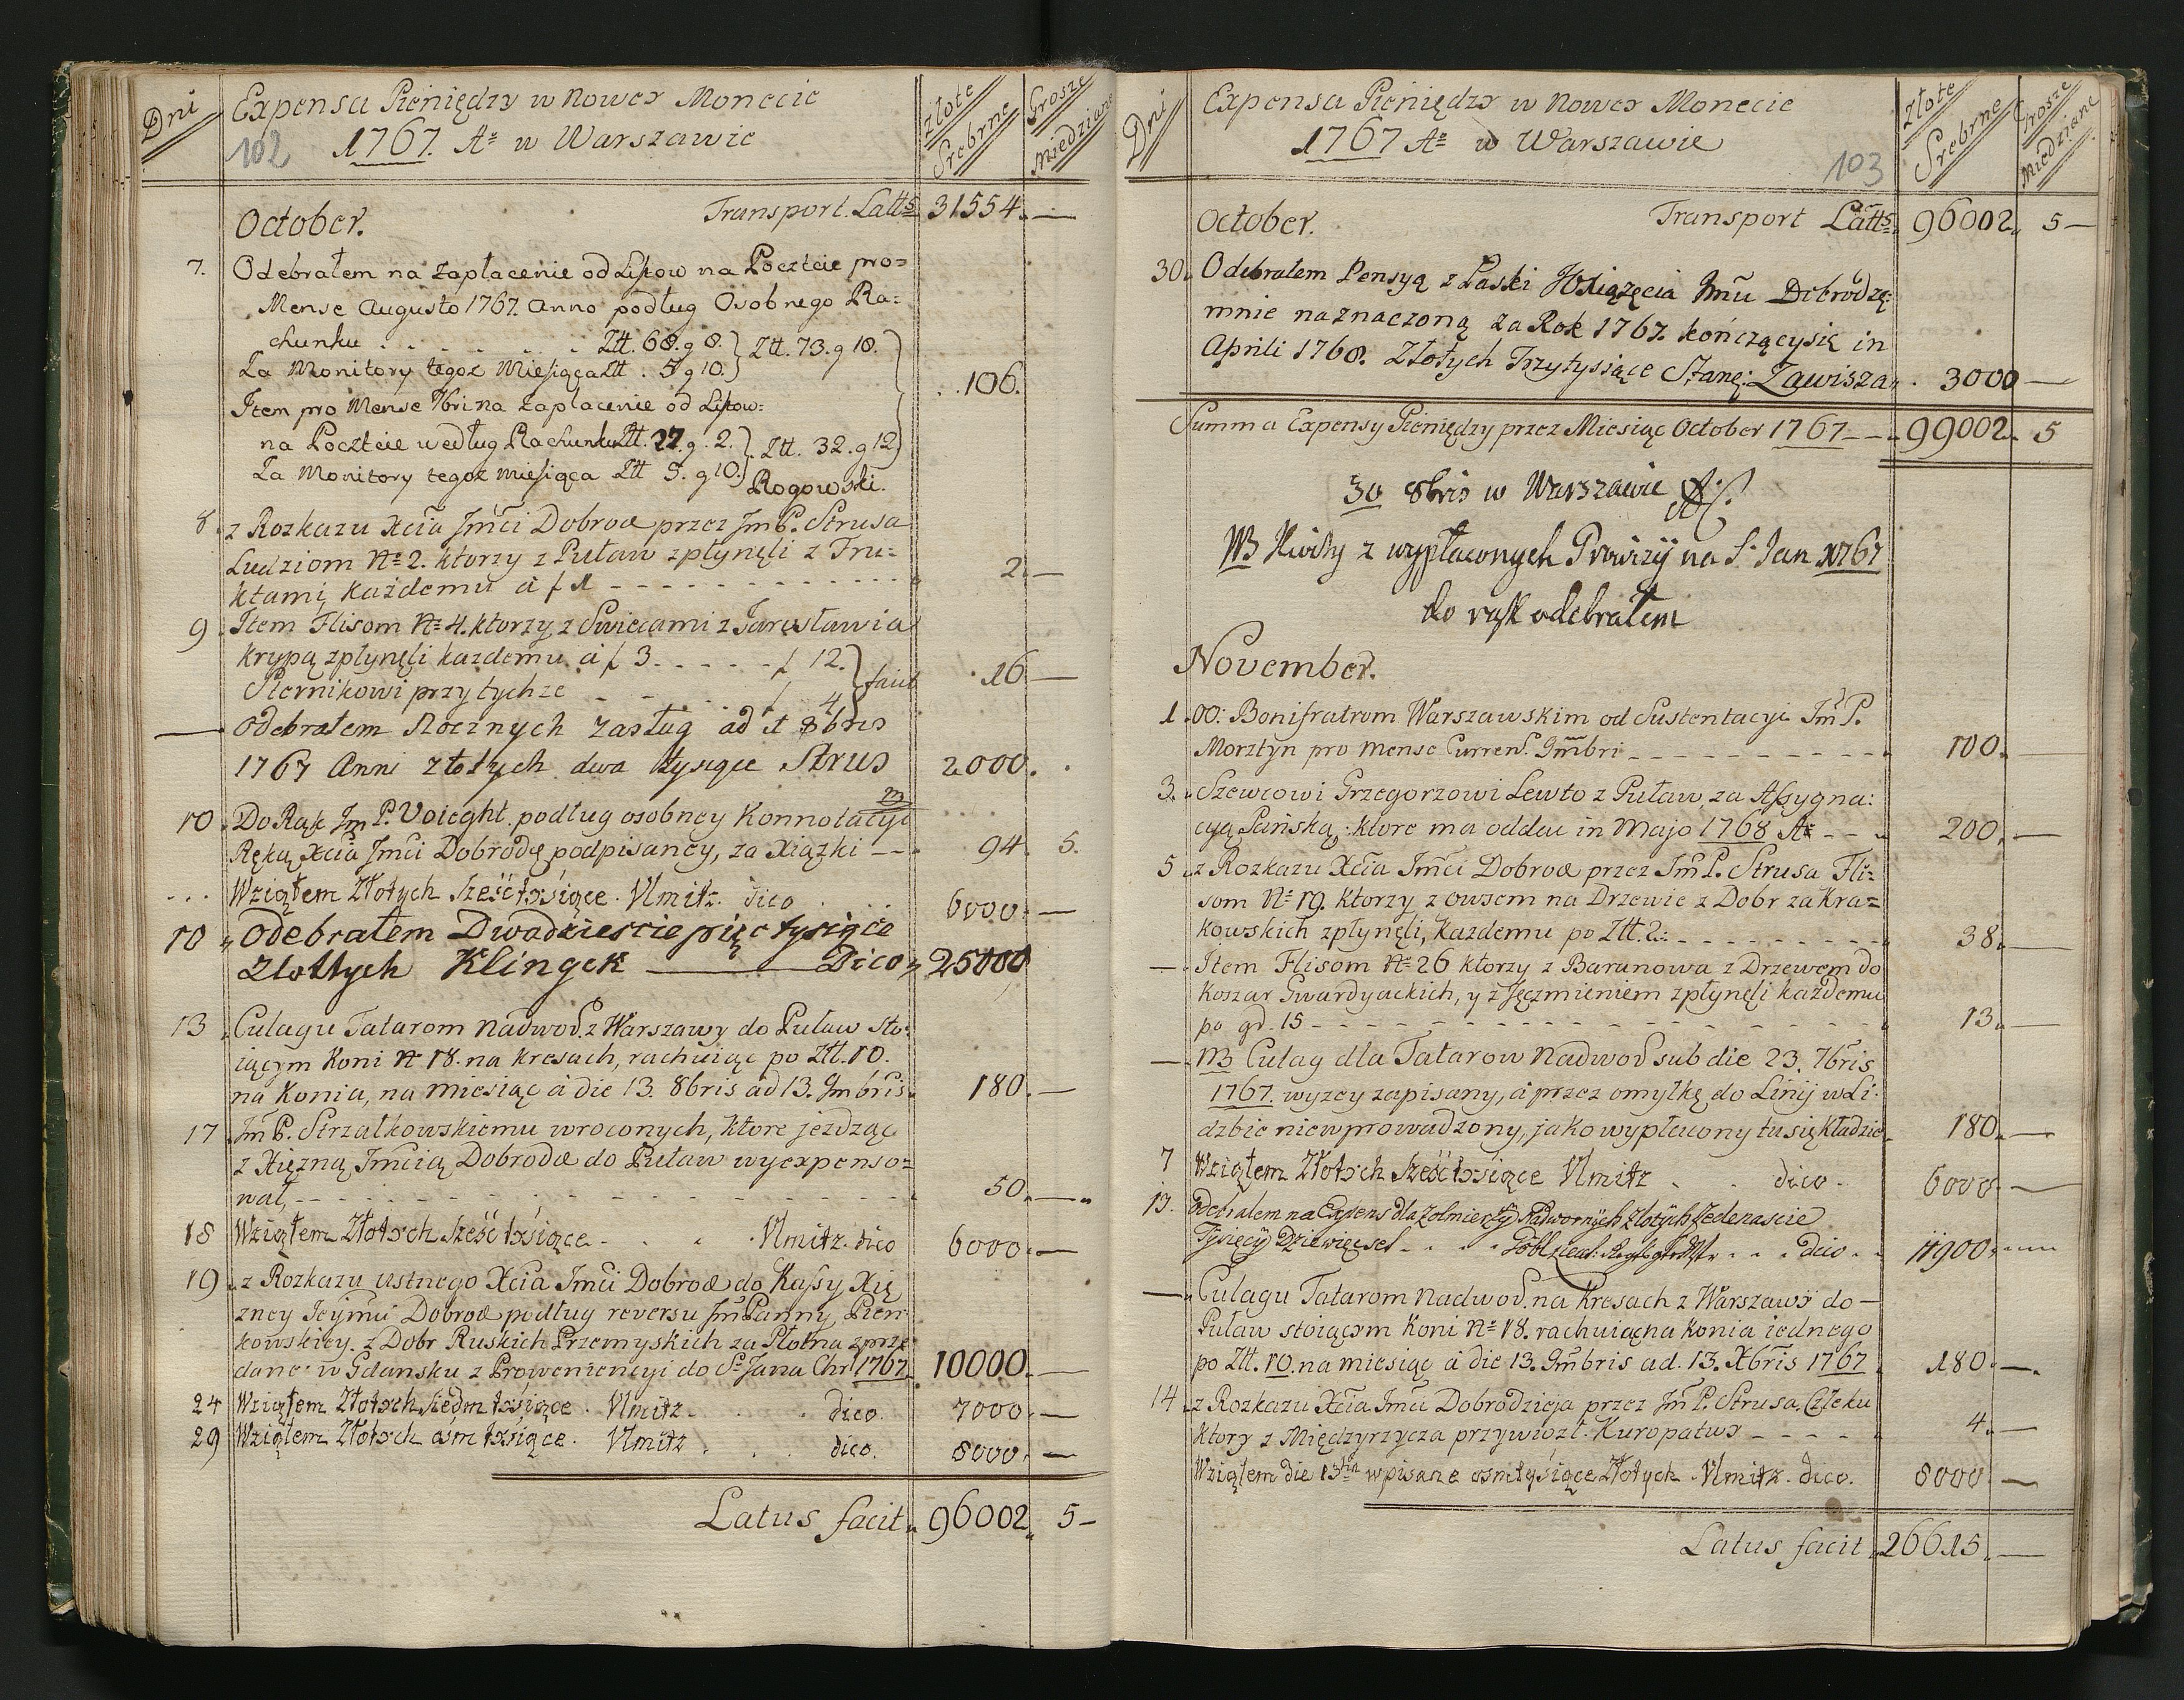 Dni
Expensa Pieniędzy w Nowey Monecie
102 1767. Aº w Warszawie
Złote Srebrne
Grosze Miedziane
October. Transport Latts 31554. —
7. Odebrałem na zapłacenie od Listow na Poczcie pro=
Mense Augusto 1767. Anno podług Osobnego Ra=
chunku . . . . . . Ztt. 68. g 8. } Ztt. 73. g 18.
Za Monitory tegoż Miesiąca Ztt. 5 g 10.
106.
Item pro Mense 7bri na zapłacenie od Listow=
na Poczcie według Rachunku Ztt. 27. g. 2. } Ztt. 32. g 12
Za Monitory tegoż miesiąca Ztt 5. g 10. Rogowski.
8. z Rozkazu Xcia Jmci Dobrod przez Jm P. Strusa
Ludziom Nº 2. ktorzy z Puław zpłynęli z Fru=
ktami, każdemu à f 1 - - - - 2. —
9. Item Flisom Nº 4. ktorzy z Swiecami z Jarosławia
krypą zpłynęli kazdemu à f 3. - - - - f 12. } facit 16 —
Sternikowi przy tychże - - - f 4
— Odebrałem Rocznych zasług ad 1 8bris
1767 Anni złotych dwa tysiące Strus 2000. .
10. Do Rąk Jm P. Voieght. podług osobney Konnotacyi
Ręką Xcia Jmci Dobrodź podpisaney, za Xiążki - - 94. 5.
. . . Wziąłem Złotych sześć tysiące. Vlmitz. dico 6000. —
10 „ Odebrałem Dwadzieście pięc tysięce
złottych Klingek — Dico „ 25000
13. Culagu Tatarom Nadwor. z Warszawy do Puław sto=
iącym Koni Nº 18. na kresach, rachuiąc po Ztt. 10.
na Konia, na miesiąc à die 13. 8bris ad 13. 9mbris. 180. —
17. Jm P. Strzałkowskiemu wroconych, ktore jezdząc
z Xięzną Jmcią Dobrodź do Puław wyexpenso=
wał, - - - - 50. —
18 Wziąłem Złotych sześć tysiące - . . Vlmitz. dico 6000. —
19. z Rozkazu ustnego Xcia Jmci Dobrod do Kassy Xię
zney Jeymci Dobrod podług reversu Jm Panny Pien=
kowskiey. z Dobr Ruskich Przemyskich za Płotna zprze
dane w Gdansku z Prowenienciyi do Sº Jana Chr 1767. 10000. —
24 Wziąłem Złotych siedm tysiące. Vlmitz . . dico. 7000. —
29 Wziąłem Złotych ośm tysiące. Vlmitz . . dico. 8000. —
Latus facit „ 96002 „ 5 —
Dni
Expensa Pieniędzy w Nowey Monecie
1767 Aº w Warszawie 103
Złote Srebrne
Grosze Miedziane
October. Transport Latts. 96002 „ 5 —
30. Odebrałem Pensyą z Łaski Xsiążęcia Jmci Dobrodz:
mnie naznaczoną za Rok 1767. kończący się in
Aprili 1768. Złotych Trzytysiące Stanę: Zawisza „ . 3000 —
Summa Expensy Pieniędzy przez Miesiąc October 1767 - - „ 99002 „ 5
30 8bris w Warszawie
NB Kwity z wypłaconych Prowizij na S. Jan 1767
do rąk odebrałem
November.
1. OO: Bonifratrom Warszawskim od Sustentacyi Jm P.
Morztyn pro mense Curren. 9mbri - - - - 100. —
3. Szewcowi Grzegorzowi Lewto z Puław, za Assygna:
cyą Pańską, ktore ma oddać in Majo 1768 Aº - - 200. —
5 z Rozkazu Xcia Jmci Dobrod przez Jm P. Strusa Fli=
som Nº 19. ktorzy z owsem na Drzewie z Dobr za Kra=
kowskich zpłynęli, Każdemu po Ztt. 2: - - - - 38. —
— Item Flisom Nº 26 ktorzy z Baranowa z Drzewem do
Koszar Gwardyackich, y z Jęczmieniem zpłynęli każdemu
po gr. 15 - - - - 13. —
— NB Culag dla Tatarow Nadwor sub die 23. 7bris
1767. wyzey zapisany, à przez omyłkę do Linij w Li=
dzbie niewprowadzony, jako wypłacony tu się kładzie 180. —
7 Wziąłem Złotych sześć tysiące Vlmitz . . dico. 6000. —
13. Odebrałem na Expens dla Zołnierzy Nadwornych Złotych Jedenascie
Tysięcy Dziewięcset . . . . dico . . 11900. —
— „ Culagu Tatarom Nadwor. na Kresach z Warszawy do —
Puław stoiącym Koni Nº 18. rachuiąc na konia iednego
po Ztt. 10. na miesiąc à die 13. 9mbris ad. 13. Xbris 1767 180. —
14. z Rozkazu Xcia Jmci Dobrodzieja przez Jm P. Strusa. Człeku
ktory z Międzyrzycza przywiozł Kuropatwy - - - - 4. —
Wziąłem die 13tia wpisane ośmtysiące Złotych Vlmitz. dico. 8000 —
Latus facit „ 26615. —